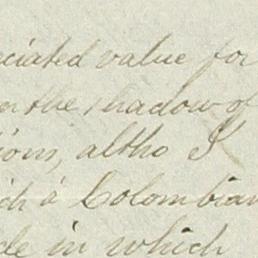 ciated value for
the shadow of
ions, altho I
ich a Colombian
de in which